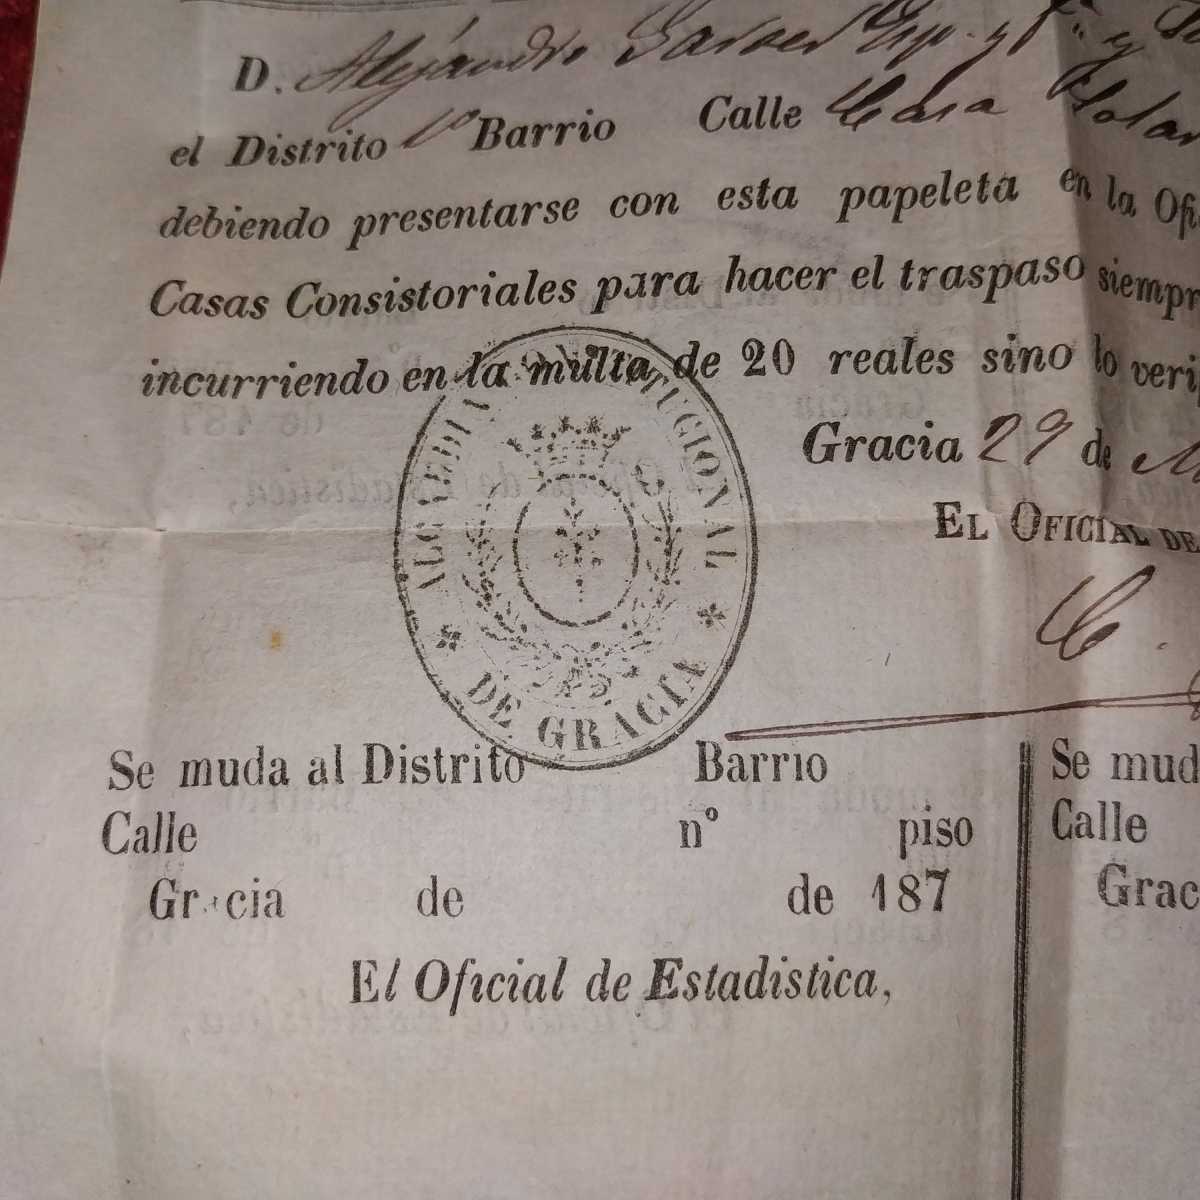 D. Alejandro
el Distrito 1º Barrio Calle Casa
debiendo presentarse con esta papeleta en la Ofi
Casas Consistoriales para hacer el traspaso siempr
incurriendo en la multa de 20 reales sino lo veri
Gracia 29 de
EL OFICIAL DE
ALCALDIA CONSTITUCIONAL
DE GRACIA
Se muda al Distrito Barrio
Calle nº piso
Gracia de de 187
El Oficial de Estadistica,
Se mud
Calle
Grac